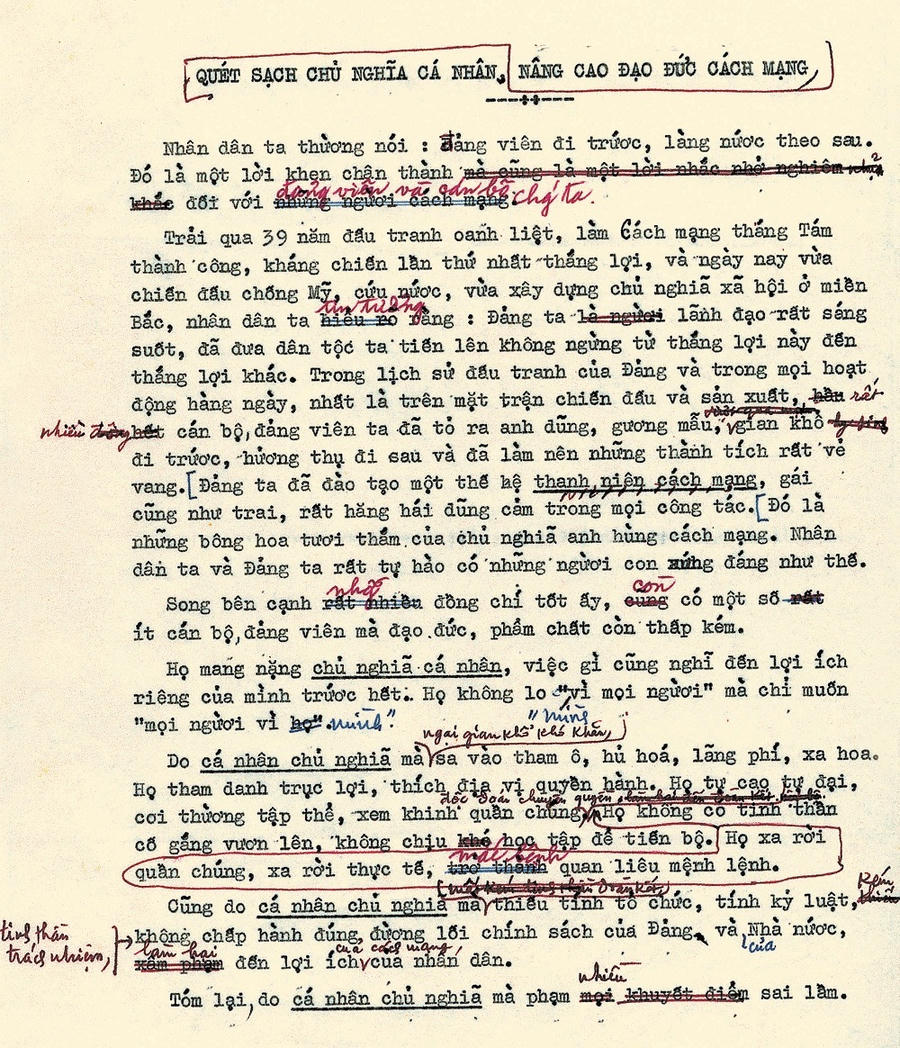 QUÉT SẠCH CHỦ NGHĨA CÁ NHÂN, NÂNG CAO ĐẠO ĐỨC CÁCH MẠNG,
Nhân dân ta thường nói : đảng viên đi trước, làng nước theo sau.
Đó là một lời khen chân thành mà cũng là một lời nhắc nhở nghiêm
đảng viên và cán bộ chúng ta.
khắc đối với những người cách mạng.
Trải qua 39 năm đấu tranh oanh liệt, làm Cách mạng tháng Tám
thành công, kháng chiến lần thứ nhất thắng lợi, và ngày nay vừa
chiến đấu chống Mỹ, cứu nước, vừa xây dựng chủ nghĩa xã hội ở miền
tin tưởng
Bắc, nhân dân ta hiểu rõ rằng : Đảng ta là người lãnh đạo rất sáng
suốt, đã đưa dân tộc ta tiến lên không ngừng từ thắng lợi này đến
thắng lợi khác. Trong lịch sử đấu tranh của Đảng và trong mọi hoạt
động hàng ngày, nhất là trên mặt trận chiến đấu và sản xuất, hầu rất
nhiều hết cán bộ, đảng viên ta đã tỏ ra anh dũng, gương mẫu, gian khổ
đi trước, hưởng thụ đi sau và đã làm nên những thành tích rất vẻ
vang. [Đảng ta đã đào tạo một thế hệ thanh niên cách mạng, gái
cũng như trai, rất hăng hái dũng cảm trong mọi công tác. [Đó là
những bông hoa tươi thắm của chủ nghĩa anh hùng cách mạng. Nhân
dân ta và Đảng ta rất tự hào có những người con xứng đáng như thế.
những còn
Song bên cạnh rất nhiều đồng chí tốt ấy, cũng có một số rất
ít cán bộ, đảng viên mà đạo đức, phẩm chất còn thấp kém.
Họ mang nặng chủ nghĩa cá nhân, việc gì cũng nghĩ đến lợi ích
riêng của mình trước hết. Họ không lo "vì mọi người" mà chỉ muốn
"mọi người vì họ". mình".
ngại gian khổ khó khăn,
Do cá nhân chủ nghĩa mà sa vào tham ô, hủ hoá, lãng phí, xa hoa.
Họ tham danh trục lợi, thích địa vị quyền hành. Họ tự cao tự đại,
độc đoán chuyên quyền,
coi thường tập thể, xem khinh quần chúng, Họ không có tinh thần
cố gắng vươn lên, không chịu khó học tập để tiến bộ. Họ xa rời
mắc bệnh
quần chúng, xa rời thực tế, trở thành quan liêu mệnh lệnh.
mất đoàn kết,
Cũng do cá nhân chủ nghĩa mà thiếu tính tổ chức, tính kỷ luật, kém
tinh thần trách nhiệm,
không chấp hành đúng đường lối chính sách của Đảng và Nhà nước,
của
làm hại của cách mạng,
xâm phạm đến lợi ích của nhân dân.
nhiều
Tóm lại, do cá nhân chủ nghĩa mà phạm mọi khuyết điểm sai lầm.